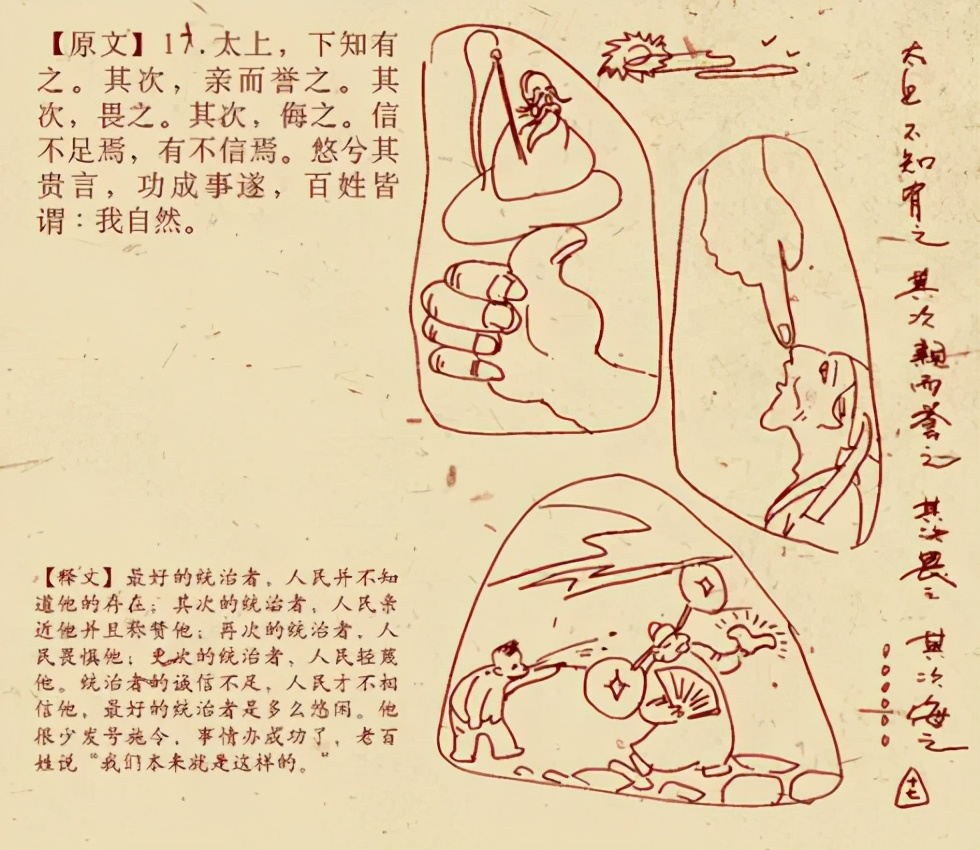 【原文】17.太上，下知有
之。其次，亲而誉之。其
次，畏之。其次，侮之。信
不足焉，有不信焉。悠兮其
贵言，功成事遂，百姓皆
谓：我自然。
【释文】最好的统治者，人民并不知
道他的存在；其次的统治者，人民亲
近他并且称赞他；再次的统治者，人
民畏惧他；更次的统治者，人民轻蔑
他。统治者的诚信不足，人民才不相
信他，最好的统治者是多么悠闲。他
很少发号施令，事情办成功了，老百
姓说“我们本来就是这样的。”
太上不知有之其次親而誉之其次畏之其次侮之
十七